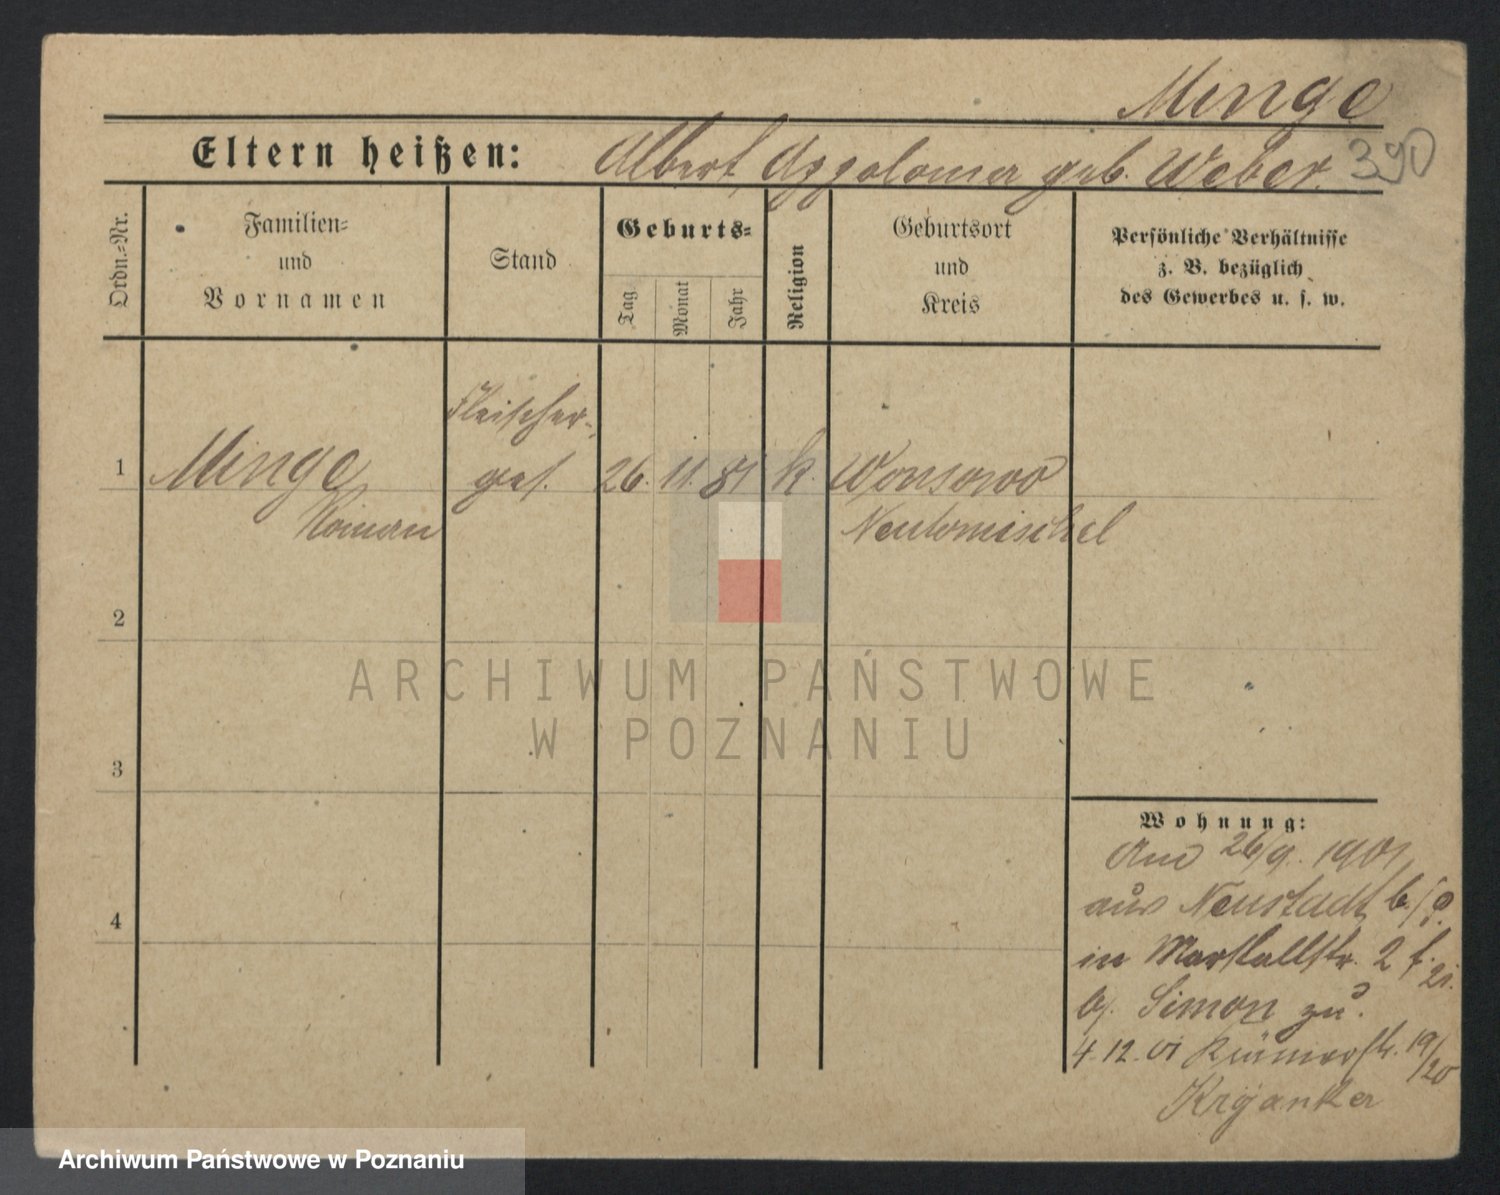 Minge
390
Eltern heißen: Albert, Appolonia geb. Weber.
Ordn.-Nr.
Familien-
und
Vornamen
Stand
Geburts-
Tag
Monat
Jahr
Religion
Geburtsort
und
Kreis
Persönliche Verhältnisse
z. B. bezüglich
des Gewerbes u. s. w.
Fleischer-
1 Minge ges. 26. 11. 81 k. Wonsowo
Roman Neutomischel
2
3
4
ARCHIWUM PAŃSTWOWE
W POZNANIU
Wohnung:
26/9. 1901
aus Neustadt b./P.
in Marstallstr. 2
b. Simon zu.
4.12.01 19/20
Archiwum Państwowe w Poznaniu